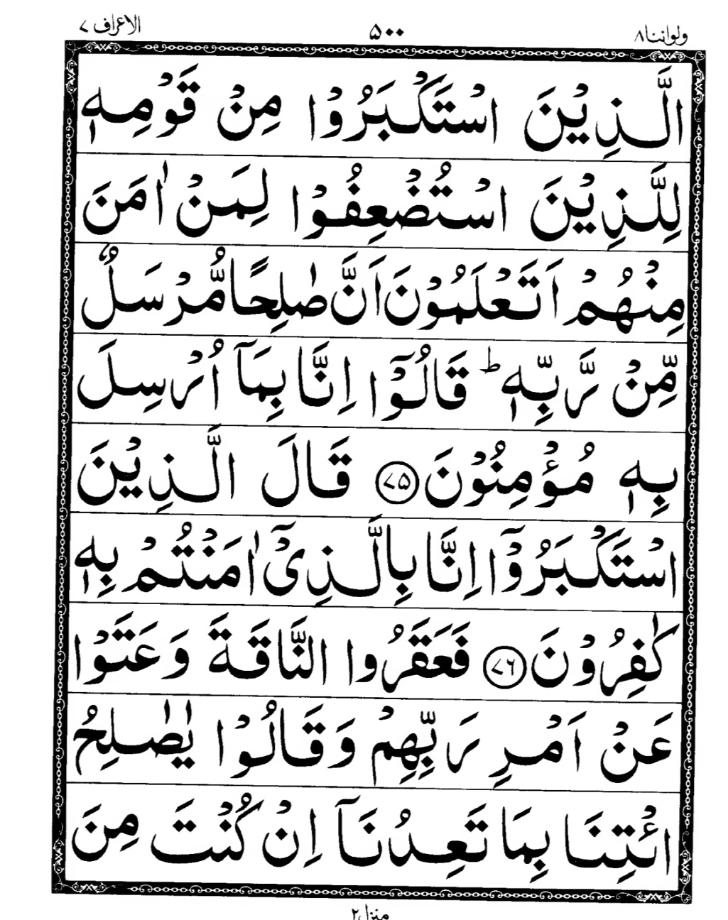 ولواننا٨ ۵۰۰ الاعراف ۷
الَّذِيْنَ اسْتَكْبَرُوْا مِنْ قَوْمِهٖ
لِلَّذِيْنَ اسْتُضْعِفُوْا لِمَنْ اٰمَنَ
مِنْهُمْ اَتَعْلَمُوْنَ اَنَّ صٰلِحًا مُّرْسَلٌ
مِّنْ رَّبِّهٖ ؕ قَالُوْۤا اِنَّا بِمَاۤ اُرْسِلَ
بِهٖ مُؤْمِنُوْنَ ﴿۷۵﴾ قَالَ الَّذِيْنَ
اسْتَكْبَرُوْۤا اِنَّا بِالَّذِيْۤ اٰمَنْتُمْ بِهٖ
كٰفِرُوْنَ ﴿۷۶﴾ فَعَقَرُوا النَّاقَةَ وَعَتَوْا
عَنْ اَمْرِ رَبِّهِمْ وَقَالُوْا يٰصٰلِحُ
ائْتِنَا بِمَا تَعِدُنَاۤ اِنْ كُنْتَ مِنَ
منزل۲